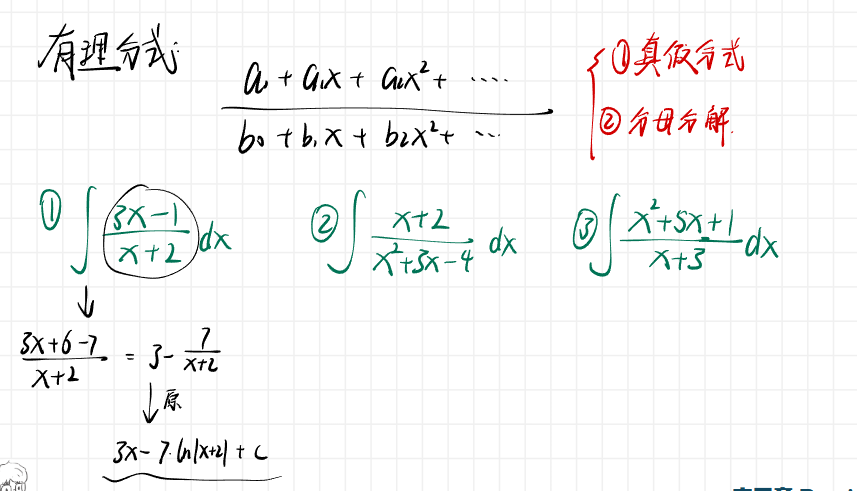 有理分式:
a₀ + a₁x + a₂x² + ....
b₀ + b₁x + b₂x² + ...
①真假分式
②分母分解.
① ∫ (3x-1)/(x+2) dx
② ∫ (x+2)/(x²+3x-4) dx
③ ∫ (x²+5x+1)/(x+3) dx
↓
(3x+6-7)/(x+2) = 3 - 7/(x+2)
↓原
3x - 7·ln|x+2| + C